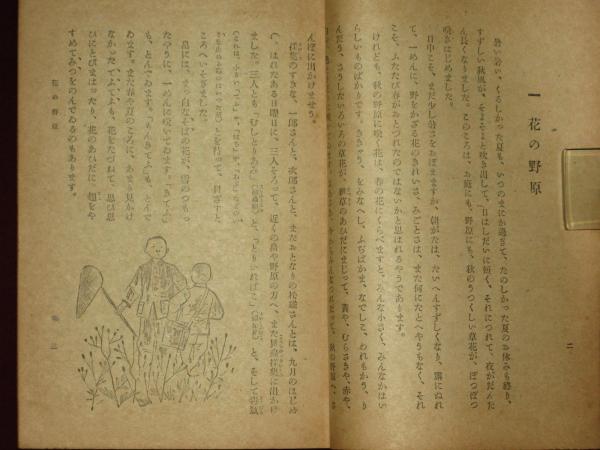 一 花の野原
暑い暑い、くるしかつた夏も、いつのまにか過ぎて、たのしかつた夏のお休みも終り、
すずしい秋風が、そよそよと吹き出して、日はしだいに短く、それにつれて、夜がだんだ
ん長くなりました。このころは、お庭にも、野原にも、秋のうつくしい草花が、ぽつぽつ
咲きはじめました。
日中こそ、まだ少し暑さをおぼえますが、朝がたは、たいへんすずしくなり、露にぬれ
て、一めんに、野をかざる花のきれいさ、みごとさは、また何にたとへやうもなく、それ
こそ、ふたたび春がおとづれたのではないかと思はれるやうであります。
けれども、秋の野原に咲く花は、春の花にくらべますと、みんな小さく、みんなかはい
らしいものばかりです。ききやう、をみなへし、ふぢばかま、なでしこ、われもかう、り
んだう、さうしたいろいろの草花が、雑草のあひだにまじつて、黄や、むらさきや、赤や、
二
んぽに出かけませう。
採集のすきな、一郎さんと、次郎さんと、またおとなりの
さんとは、九月のはじめ
の、はれたある日曜日に、三人そろつて、近くの畠や野原の方へ、また昆虫採集に出かけ
ました。三人とも「むしとりあみ」
と、そして
を持つて、目ざすと
ころへいそぎました。
畠には、まつ白なそばの花が、雪のつもつ
たやうに、一めんに咲いてゐます。「きてふ」
も、とんでゐます。「もんきてふ」も、とんで
ゐます。また春や夏のころに、あまり見かけ
なかつた、てふてふも、花をたづねて、思ひ思
ひにとびまはつたり、花のあひだに、翅をや
すめてみつをのんでゐるのもあります。
花の野原
三